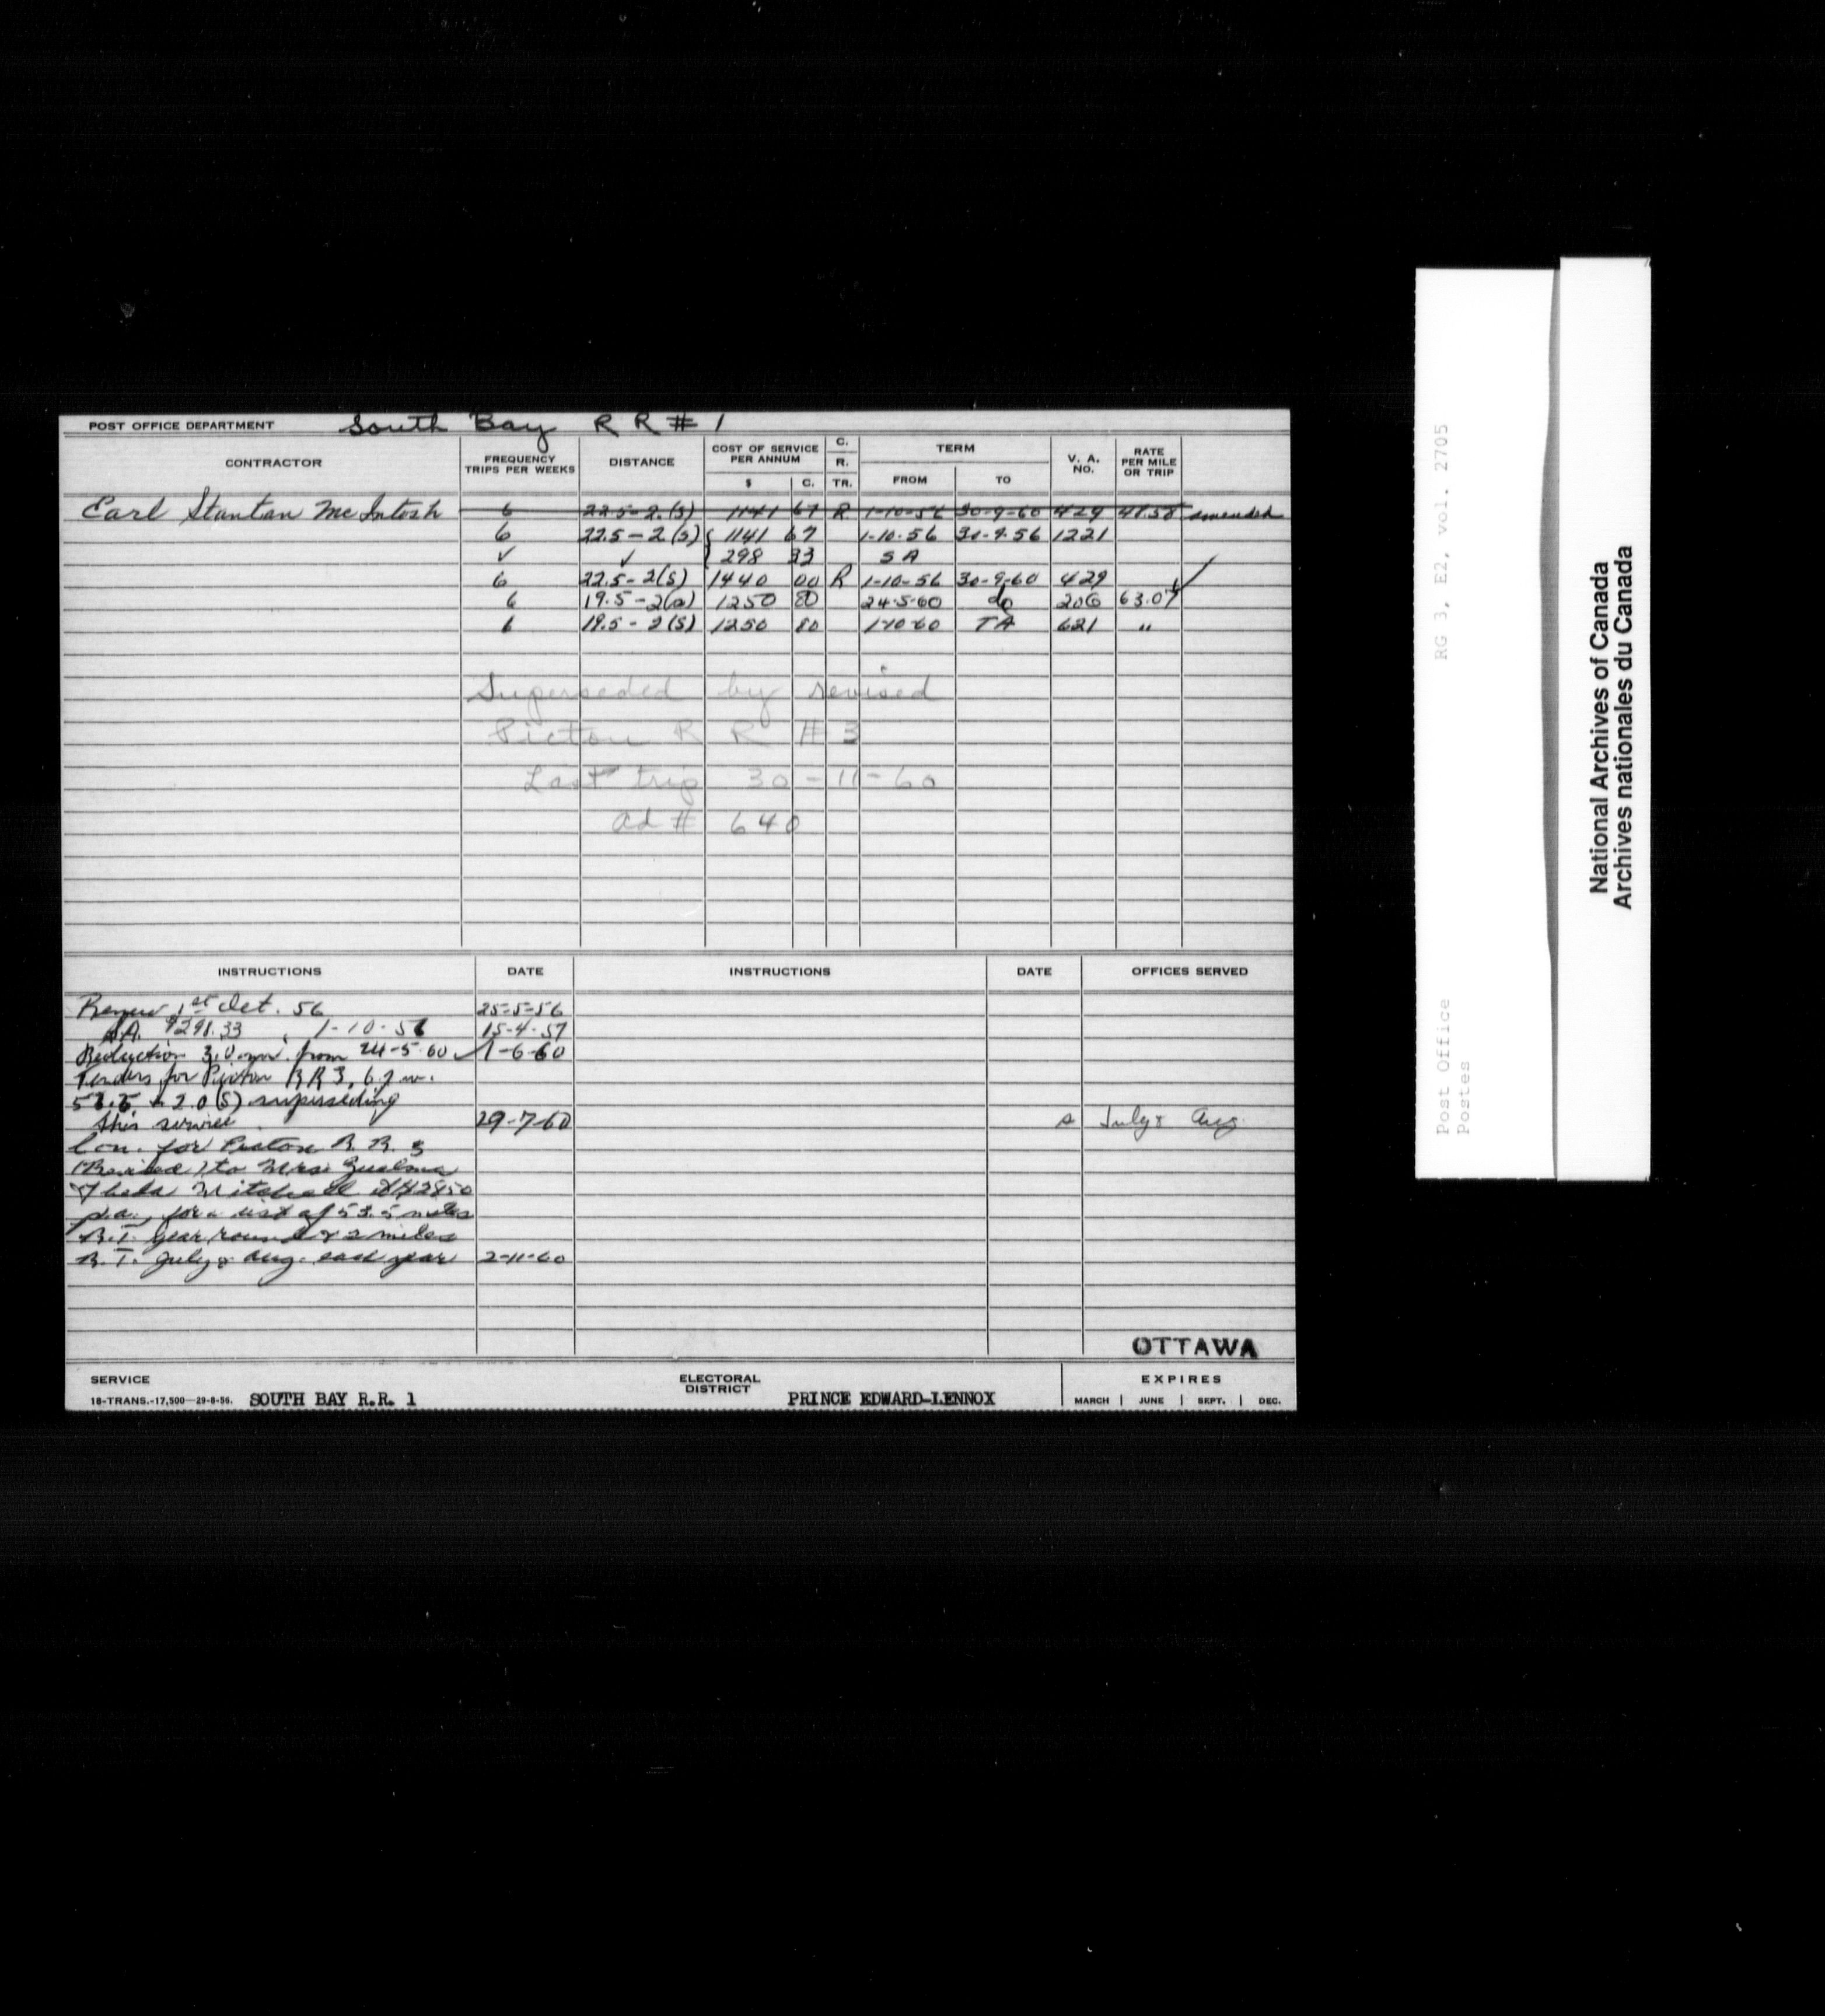 POST OFFICE DEPARTMENT South Bay R R # 1
CONTRACTOR FREQUENCY TRIPS PER WEEKS DISTANCE COST OF SERVICE PER ANNUM $ C. C. R. TR. TERM FROM TO V. A. NO. RATE PER MILE OR TRIP
Earl Stanton McIntosh 6 22.5-2(S) 1141 67 R 1-10-56 30-9-60 429 47.58 amended
6 22.5-2(S) { 1141 67 1-10-56 30-9-56 1221
✓ ✓ 298 33 S A
6 22.5-2(S) 1440 00 R 1-10-56 30-9-60 429 ✓
6 19.5-2(s) 1250 80 24-5-60 do 206 63.07
6 19.5-2(S) 1250 80 1-10-60 TA 621 "
Superseded by revised
Picton R R # 3
Last trip 30-11-60
ad # 640
INSTRUCTIONS DATE INSTRUCTIONS DATE OFFICES SERVED
Renew 1st Oct. 56 25-5-56
S.A. 1-10-56 15-4-57
Reduction 3.0 mi. from 24-5-60 ✓ 1-6-60
Tenders for Picton RR3, 6
+ 2.0(S) superseding
this service 29-7-60 s July & Aug.
Con. for Picton R. R. 3
(Revised) to Mrs.
Mitchell 2850
p.a., for a dist of 53.5 miles
R.T. year round & 2 miles
R.T. July & Aug. each year 2-11-60
OTTAWA
SERVICE
18-TRANS.-17,500-29-8-56. SOUTH BAY R.R. 1 ELECTORAL DISTRICT PRINCE EDWARD-LENNOX EXPIRES
MARCH | JUNE | SEPT. | DEC.
RG 3, E2, vol. 2705
Post Office
Postes
National Archives of Canada
Archives nationales du Canada